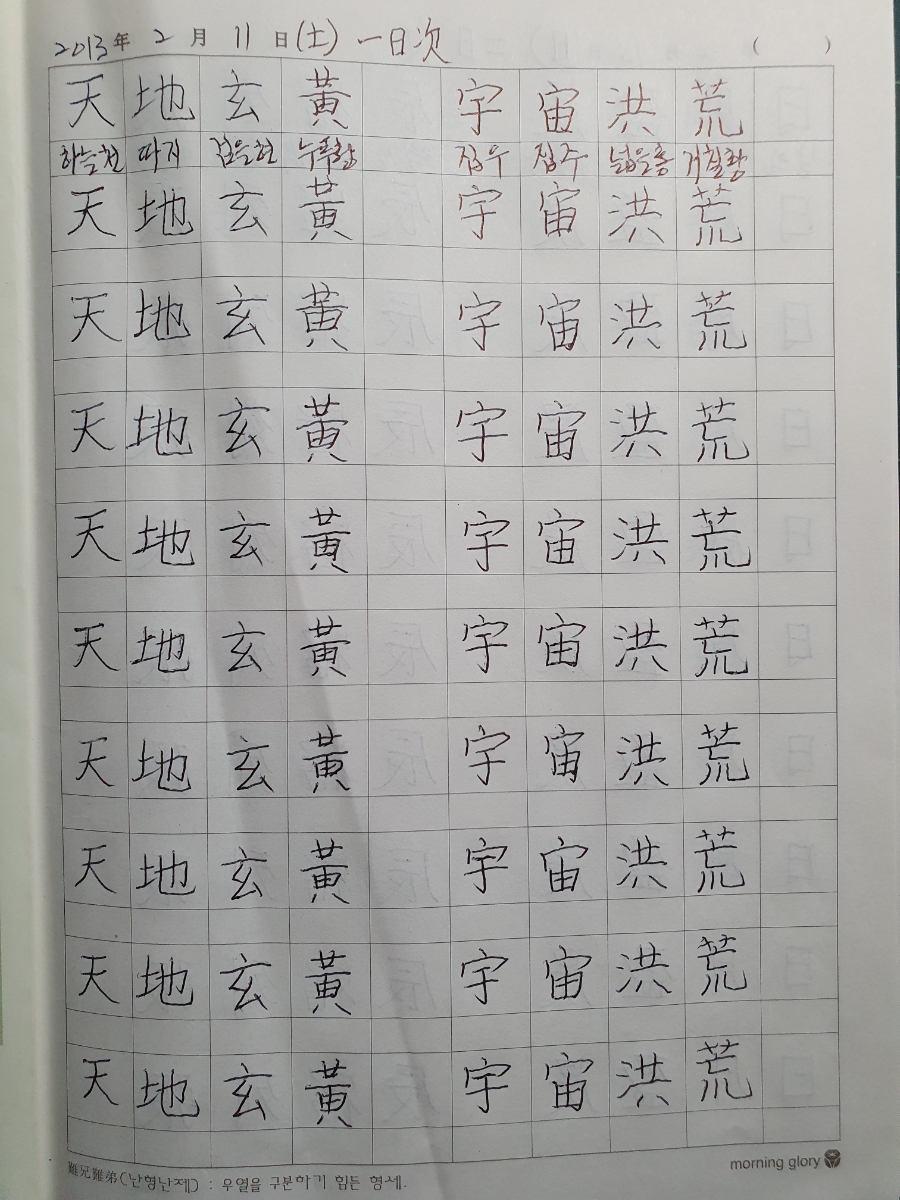 2013年 2 月 11 日(土) 一日次 ( )
天 地 玄 黃 宇 宙 洪 荒
하늘천 따지 검을현 누를황 집우 집주 넓을홍 거칠황
天 地 玄 黃 宇 宙 洪 荒
天 地 玄 黃 宇 宙 洪 荒
天 地 玄 黃 宇 宙 洪 荒
天 地 玄 黃 宇 宙 洪 荒
天 地 玄 黃 宇 宙 洪 荒
天 地 玄 黃 宇 宙 洪 荒
天 地 玄 黃 宇 宙 洪 荒
天 地 玄 黃 宇 宙 洪 荒
天 地 玄 黃 宇 宙 洪 荒
難兄難弟(난형난제) : 우열을 구분하기 힘든 형세.
morning glory